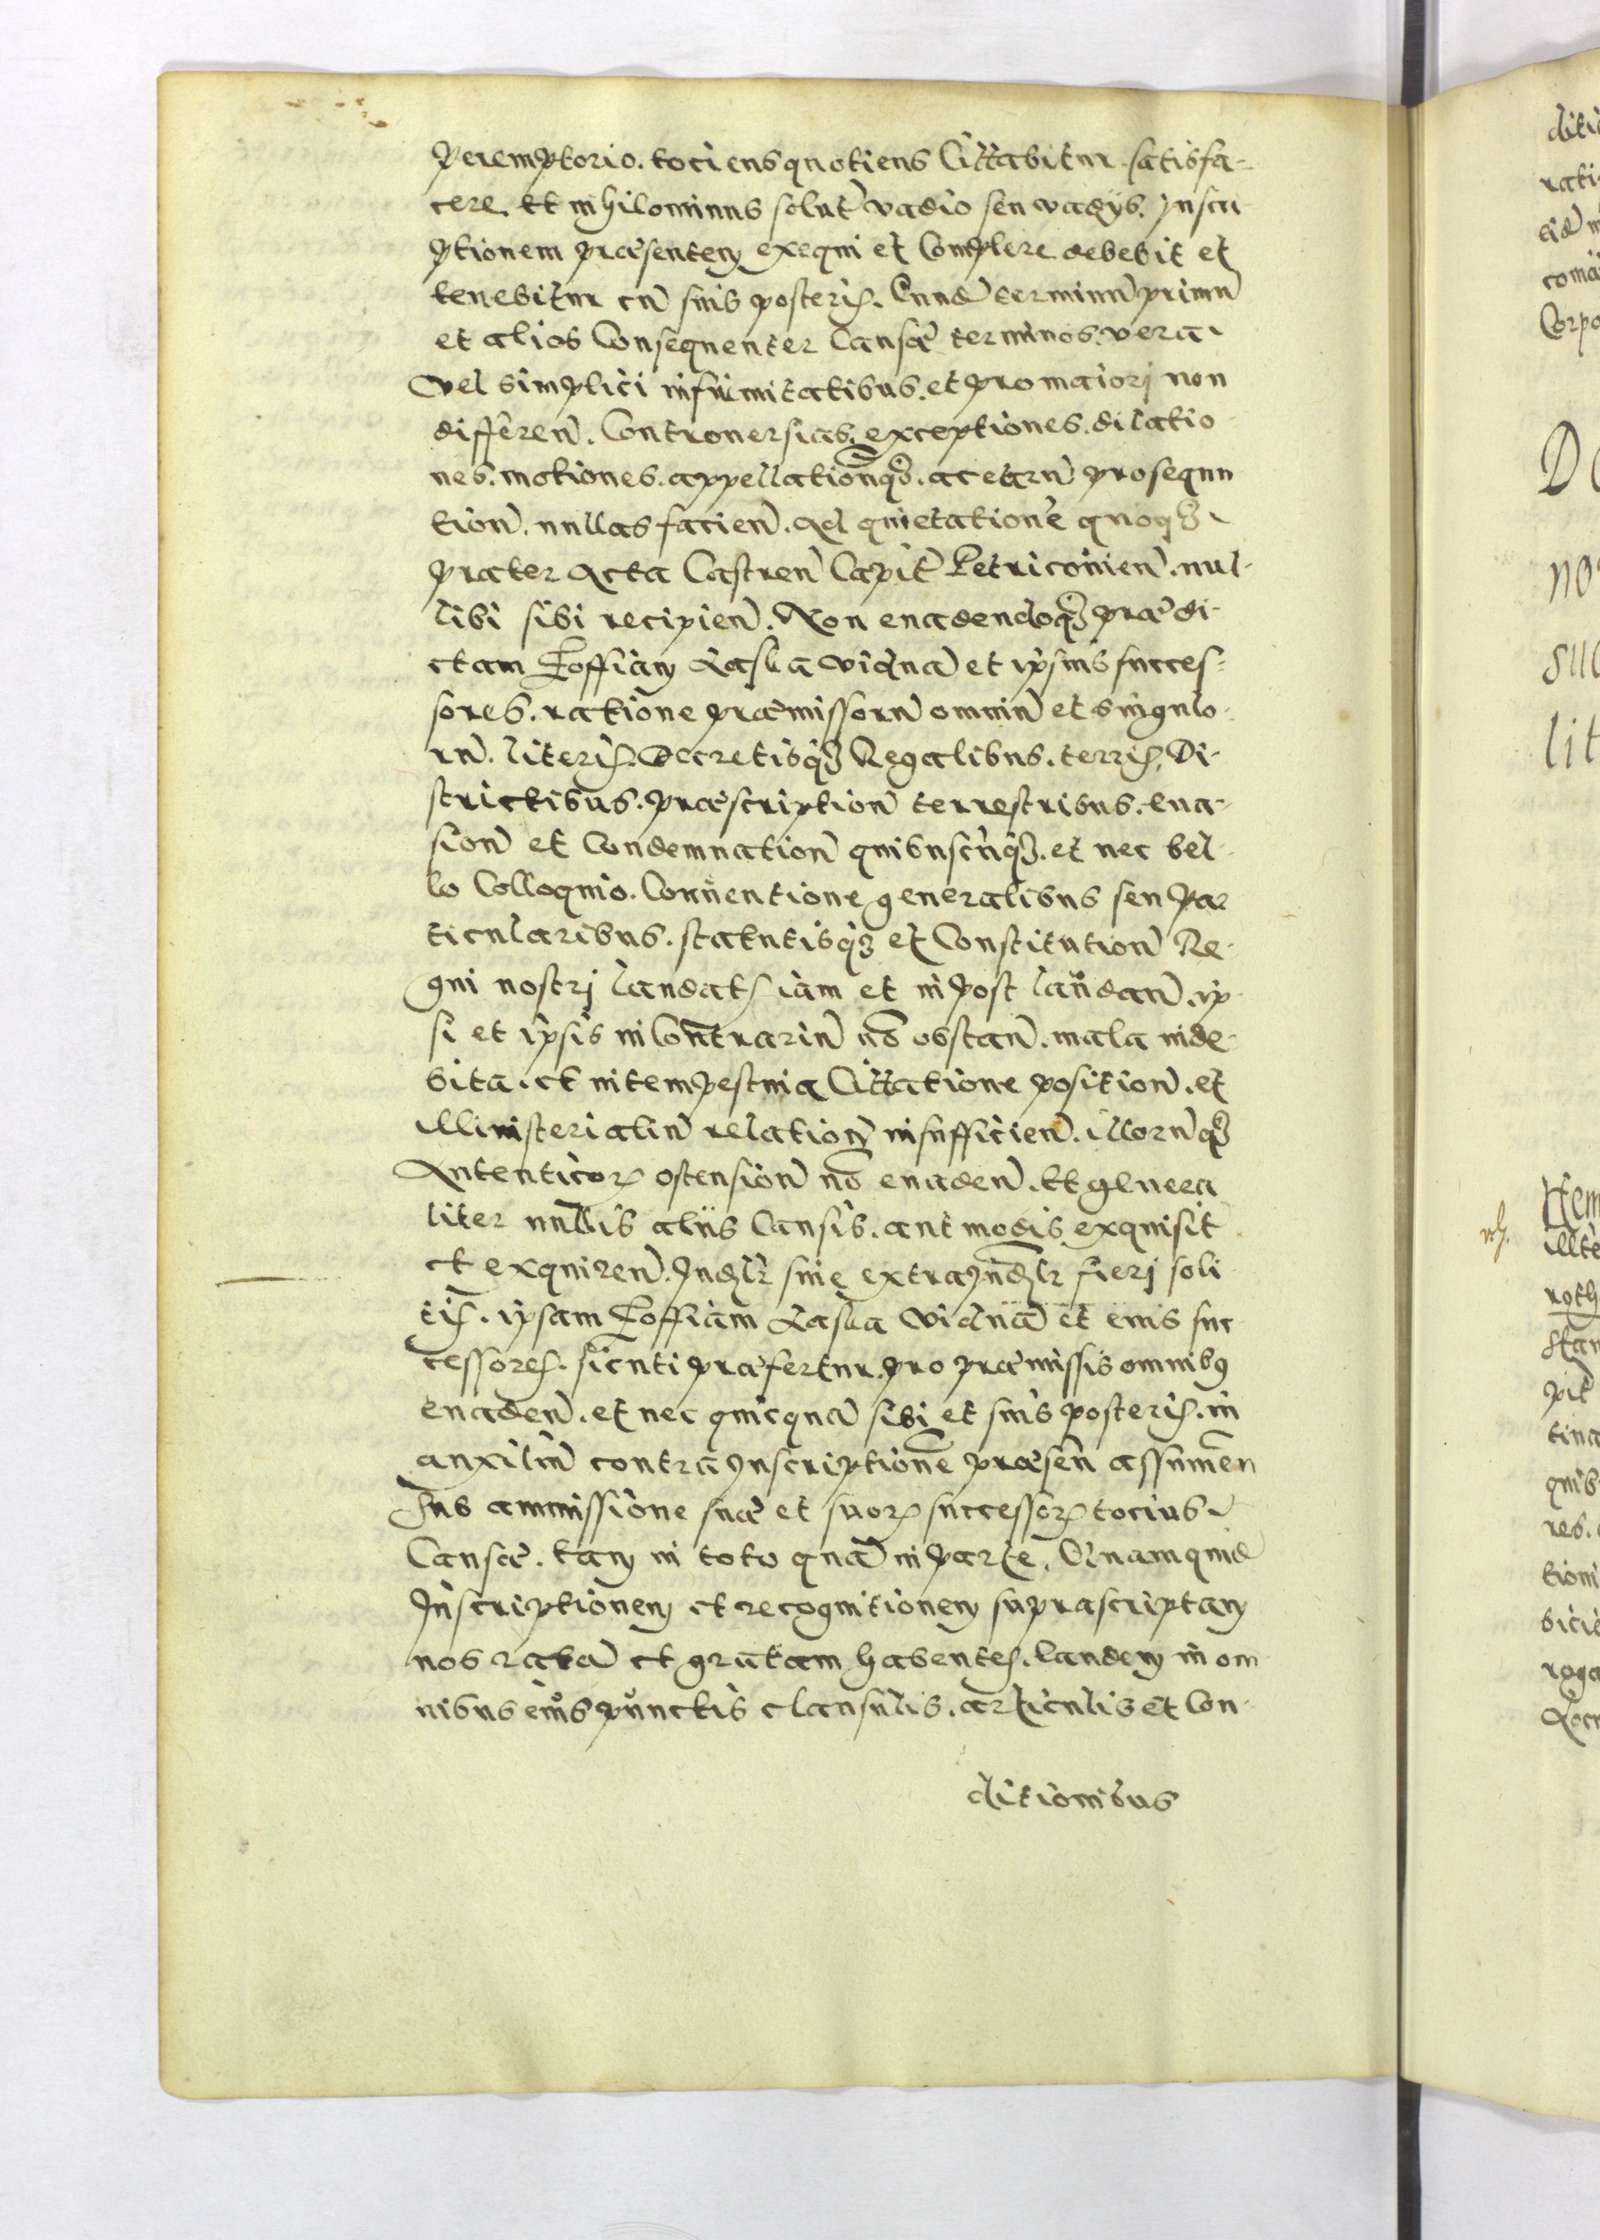 peremptorio. tociens quotiens Cittabitur. satisfa-
cere. Et nihilominus solut vadio seu vadÿs. Inscri
ptionem præsentem exequi et Complere debebit et
tenebitur cu suis posteris. Eund terminu primu
et alios Consequenter Causæ terminos. vera
vel simplici infirmitatibus. et pro maiori non
differen. Controuersias. exceptiones. dilatio
nes. motiones. appellationq3. ac earu prosequu
tion. nullas facien. Ad quietatione quoq3
præter Acta Castren Capit Petriconien. nul-
libi sibi recipien. Non euadendoq3 prædi-
ctam Zoffiam Laska vidua et ipsius succes-
sores. ratione præmissoru omniu et singulo-
ru. literis. Decretisq3 Regalibus. terris. Di-
strictibus. præscription terrestribus. eua-
sion et Condemnation quibuscuq3. et nec bel-
lo Colloquio. Conuentione generalibus seu par
ticularibus. statutisq3 et Constitution Re-
gni nostri laudatis iam et in post laudan. ip-
si et ipsis in Contrariu no obstan. mala inde-
bita. et intempestiua Cittatione position. et
Ministerialiu relation insufficien. illoruq3
Autenticor ostension no euaden. Et genera
liter nullis aliis Causis. aut modis exquisit
et exquiren. Iudlr siue extraiudlr fieri soli-
tis. ipsam Zoffiam Laska viduã et eius suc
cessores. sicuti præfertur. pro præmissis omnibus
euaden. et nec quicqua sibi et suis posteris. in
auxiliu contra Inscriptione præsen assumen
Sub ammissione suæ et suor successor tocius
Causæ. tam in toto qua in parte. Quamquid
Inscriptionem et recognitionem suprascriptam
nos rata et gratam habentes. landem in om
nibus eius punctis clausulis. articulis et Con-
ditionibus